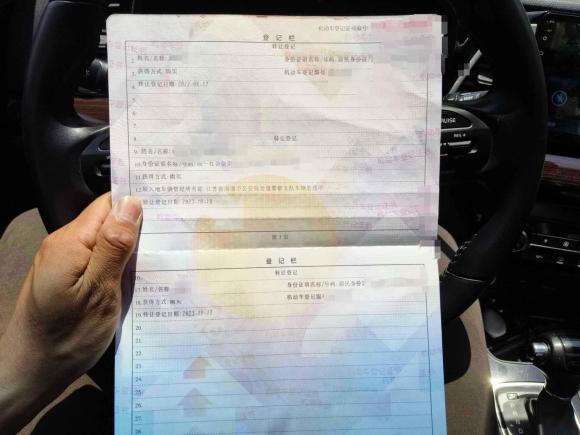 机动车登记证书编号:
登 记 栏
转让登记
2.姓名/名称:
身份证明名称/号码:居民身份证/
3.获得方式:购买
机动车登记编号:
转让登记日期:2022-08-17
5.
6.
7.
8.
转让登记
9.姓名/名称:
10.身份证明名称/号码:统一社会信
11.获得方式:购买
12.转入地车辆管理所名称:江苏省南通市公安局交通警察支队车辆管理所
转让登记日期:2023-10-10
第 3 页
登 记 栏
16.
转让登记
17.姓名/名称
身份证明名称/号码:居民身份
18.获得方式:购买
机动车登记编
19.转让登记日期:2023-11-17
20.
21.
22.
23.
24.
25.
26.
27.
28.
CRUISE